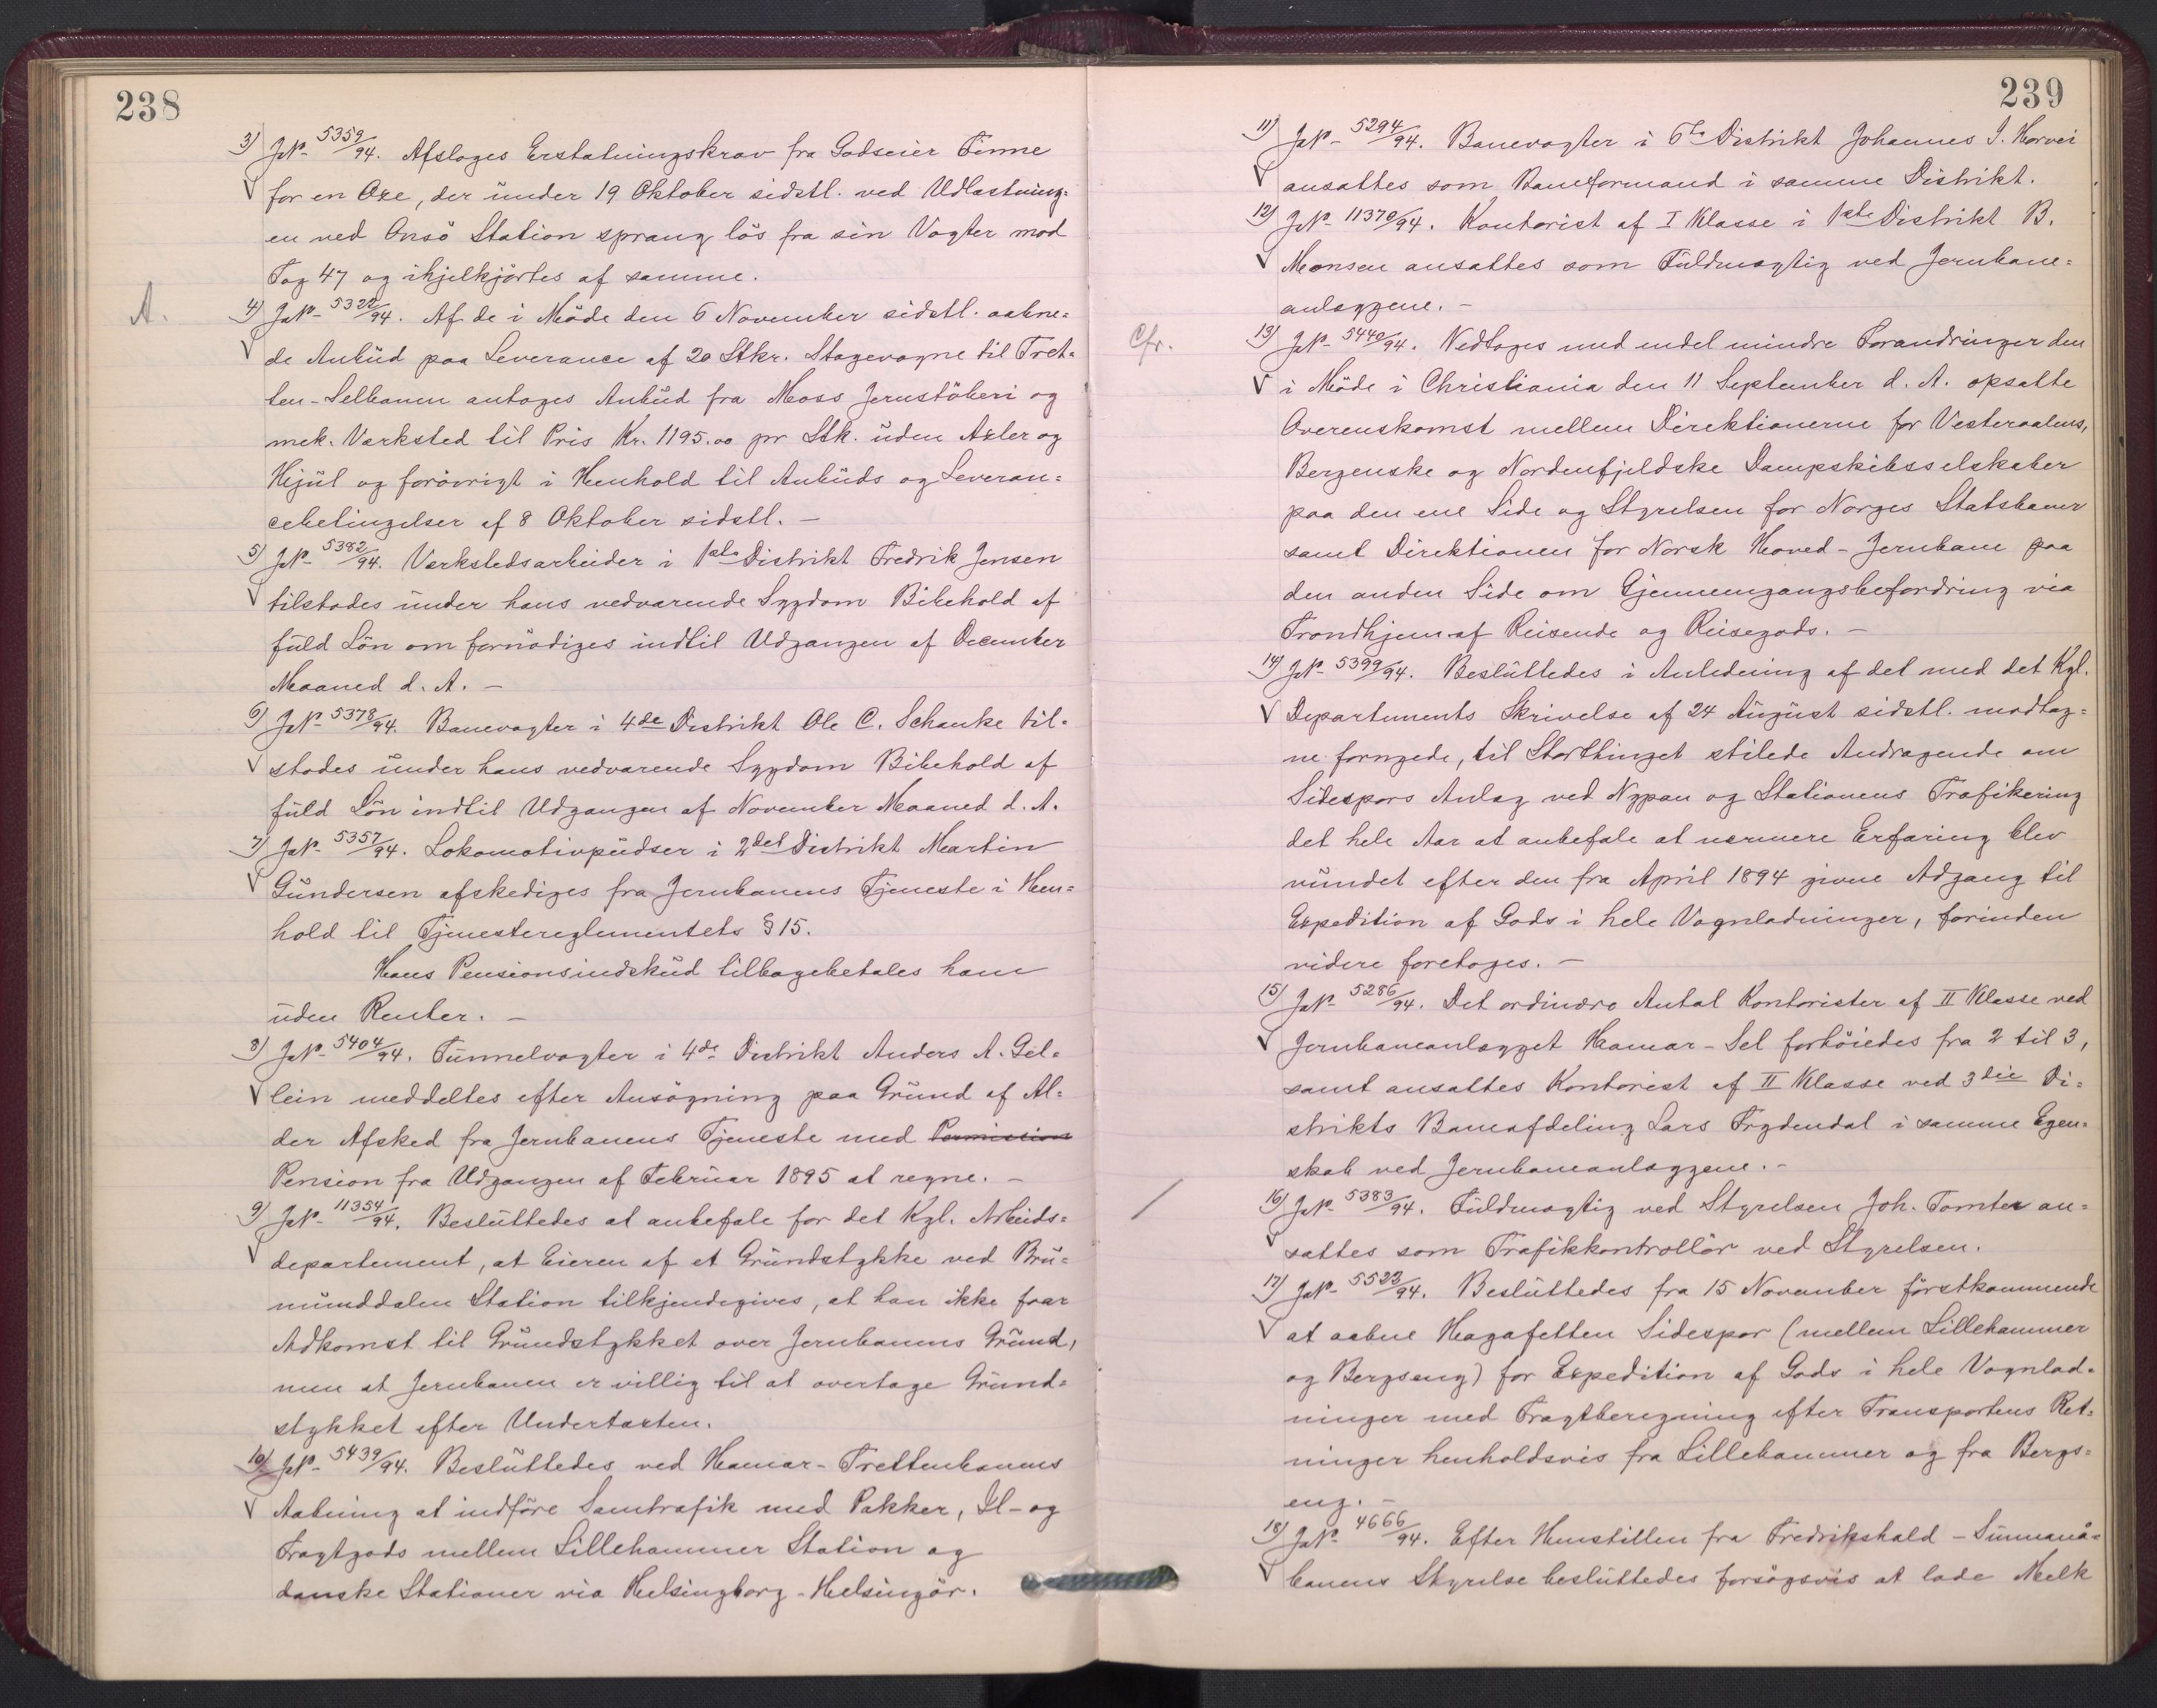 238
3) JN- 5359/94. Afsloges Erstatningskrav fra Godseier Finne
for en Oxe, der under 19 Oktober sidstl. ved Udlastning=
en ved Onsö Station sprang lös fra sin Vogter mod
Tog 47 og ihjelkjörtes af samme.
A.
4) JN- 5322/94. Af de i Möde den 6 November sidstl. aabne=
de Anbud paa Leverance af 20 Stkr. Stagevogne til Tret=
ten-Selbanen antoges Anbud fra Moss Jernstöberi og
mek. Værksted til Pris Kr. 1195.00 pr Stk. uden Axler og
Hjul og forövrigt i Henhold til Anbuds og Leveran=
cebetingelser af 8 Oktober sidstl. –
5) JN- 5382/94. Værkstedsarbeider i 1ste Distrikt Fredrik Jensen
tilstodes under hans vedvarende Sygdom Bibehold af
fuld Lön om fornödiges indtil Udgangen af December
Maaned d. A. –
6) JN- 5378/94. Banevogter i 4de Distrikt Ole C. Schanke til=
stodes under hans vedvarende Sygdom Bibehold af
fuld Lön indtil Udgangen af November Maaned d. A.
7) JN- 5357/94. Lokomotivpudser i 2det Distrikt Martin
Gundersen afskediges fra Jernbanens Tjeneste i Hen=
hold til Tjenestereglementets § 15.
Hans Pensionsindskud tilbagebetales ham
uden Renter. –
8) JN- 5404/94. Tunnelvogter i 4de Distrikt Anders A. Gel=
lein meddeltes efter Ansögning paa Grund af Al=
der Afsked fra Jernbanens Tjeneste med Permission
Pension fra Udgangen af Februar 1895 at regne. –
9) JN- 11354/94. Besluttedes at anbefale for det Kgl. Arbeids=
departement, at Eieren af et Grundstykke ved Bru=
munddalen Station tilkjendegives, at han ikke faar
Adkomst til Grundstykket over Jernbanens Grund,
men at Jernbanen er villig til at overtage Grund=
stykket efter Undertaxten.
10) JN- 5439/94. Besluttedes ved Hamar-Trettenbanens
Aabning at indföre Samtrafik med Pakker, Il- og
Fragtgods mellem Lillehammer Station og
danske Stationer via Helsingborg-Helsingör.
239
11) JN- 5294/94. Banevogter i 6te Distrikt Johannes I. Horvei
ansattes som Baneformand i samme Distrikt.
12) JN- 11370/94. Kontorist af I Klasse i 1ste Distrikt B.
Monsen ansattes som Fuldmægtig ved Jernbane=
anlæggene. –
Cfr.
13) JN- 5440/94. Vedtoges med endel mindre Forandringer den
i Möde i Christiania den 11 September d. A. opsatte
Overenskomst mellem Direktionerne for Vesteraalens,
Bergenske og Nordenfjeldske Dampskibsselskaber
paa den ene Side og Styrelsen for Norges Statsbaner
samt Direktionen for Norsk Hoved-Jernbane paa
den anden Side om Gjennemgangsbefordring via
Trondhjem af Reisende og Reisegods. –
14) JN- 5399/94. Besluttedes i Anledning af det med det Kgl.
Departements Skrivelse af 24 August sidstl. modtag=
ne fornyede, til Storthinget stilede Andragende om
Sidespors Anlæg ved Nypan og Stationens Trafikering
det hele Aar at anbefale at nærmere Erfaring blev
vundet efter den fra April 1894 givne Adgang til
Expedition af Gods i hele Vognladninger, forinden
videre foretoges. –
15) JN- 5286/94. Det ordinære Antal Kontorister af II Klasse ved
Jernbaneanlægget Hamar-Sel forhöiedes fra 2 til 3,
samt ansattes Kontorist af II Klasse ved 3die Di=
strikts Baneafdeling Lars Frydendal i samme Egen=
skab ved Jernbaneanlæggene. –
16) JN- 5383/94. Fuldmægtig ved Styrelsen Joh. Tomter an=
sattes som Trafikkontrollör ved Styrelsen.
17) JN- 5523/94. Besluttedes fra 15 November förstkommende
at aabne Hagafetten Sidespor (mellem Lillehammer
og Bergseng) for Expedition af Gods i hele Vognlad=
ninger med Fragtberegning efter Transportens Ret=
ninger henholdsvis fra Lillehammer og fra Bergs=
eng. –
18) JN- 4666/94. Efter Henstillen fra Fredrikshald-Sunnanå=
banens Styrelse besluttedes forsögsvis at lade Melk